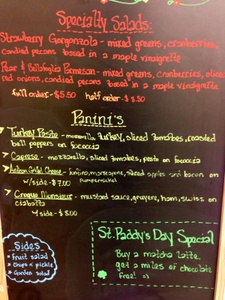 Specialty Salads:
Strawberry Gorgonzola - mixed greens, cranberries,
candied pecans tossed in a maple vinaigrette
Pear & Parmesan - mixed greens, cranberries, sliced
red onions, candied pecans tossed in a maple vinaigrette
full order - $5.50 half order - $3.50
Panini's
Turkey Pesto - mozzarella, turkey, sliced tomatoes, roasted
bell peppers on focaccia
Caprese - mozzarella, sliced tomatoes, pesto on focaccia
Grilled Cheese - fontina, mascarpone, sliced apples and bacon on
w/side - $7.00 pumpernickel
Croque Monsieur - mustard sauce, gruyere, ham, swiss on
ciabatta
w/side - $8.00
Sides
fruit salad
chips n pickle
Garden salad
St. Paddy's Day Special
Buy a matcha latte,
get 2 milks or chocolate
free! :)